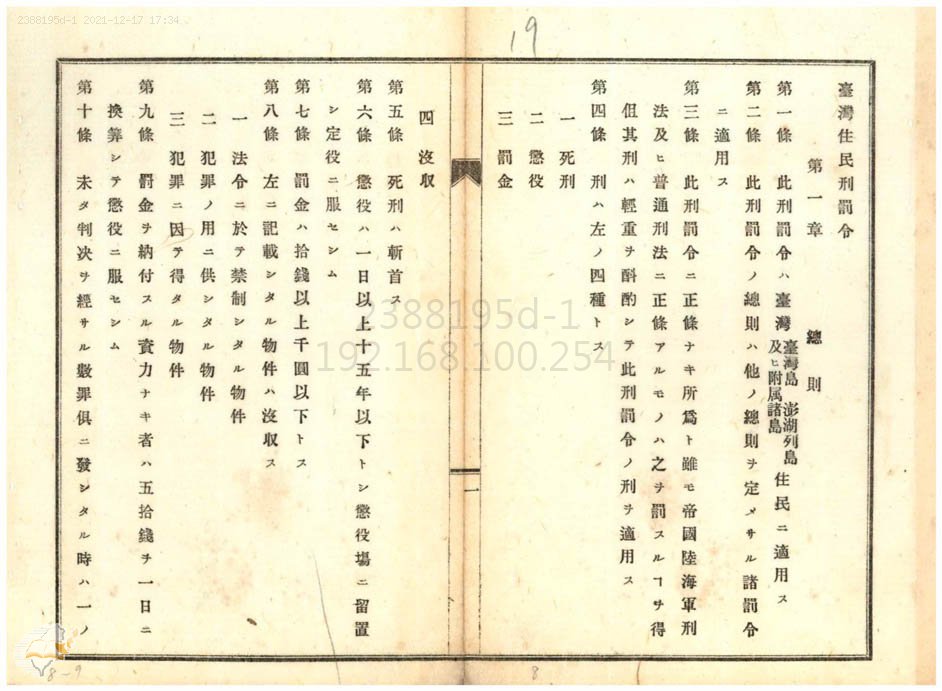 2388195d-1 2021-12-17 17:34
19
臺灣住民刑罰令
第一章　總則
第一條　此刑罰令ハ臺灣臺灣島澎湖列島及ヒ附属諸島住民ニ適用ス
第二條　此刑罰令ノ總則ハ他ノ總則ヲ定メサル諸罰令
ニ適用ス
第三條　此刑罰令ニ正條ナキ所爲ト雖モ帝國陸海軍刑
法及ヒ普通刑法ニ正條アルモノハ之ヲ罰スルヿヲ得
但其刑ハ輕重ヲ酙酌シテ此刑罰令ノ刑ヲ適用ス
第四條　刑ハ左ノ四種トス
一　死刑
二　懲役
三　罰金
一
四　沒収
第五條　死刑ハ斬首ス
第六條　懲役ハ一日以上十五年以下トシ懲役塲ニ留置
シ定役ニ服セシム
第七條　罰金ハ拾錢以上千圓以下トス
第八條　左ニ記載シタル物件ハ沒収ス
一　法令ニ於テ禁制シタル物件
二　犯罪ノ用ニ供シタル物件
三　犯罪ニ因テ得タル物件
第九條　罰金ヲ納付スル資力ナキ者ハ五拾錢ヲ一日ニ
換算シテ懲役ニ服セシム
第十條　未タ判决ヲ經サル數罪俱ニ發シタル時ハ一ノ
2388195d-1
192.168.100.254
8
8-9